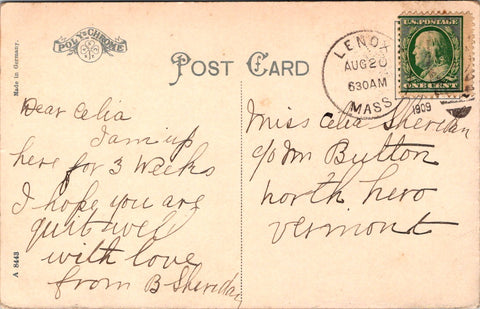 POLY-CHROME
Made in Germany.
POST CARD
LENOX
AUG 20
630AM
MASS.
1909
U.S. POSTAGE
ONE CENT
Dear Celia
I am up
here for 3 weeks
I hope you are
quit well
with love
from B Sheridan
Miss Celia Sheridan
c/o Wm Button
north hero
vermont
A 8443